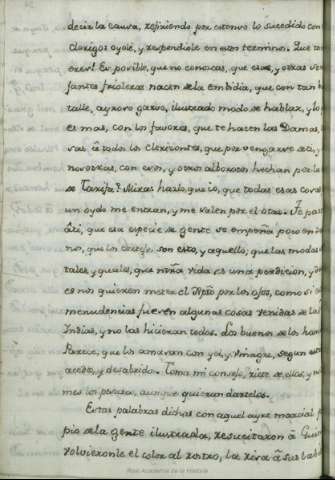 decir la causa, refiriendo por extenso lo sucedido con
Clerigos oyole, y respondiole en estos terminos. Que to
Es posible, que no conozcas, que esas, y otras se
fantes frioleras nacen de la embidia, que con tan b
talle, ayroso garvo, ilustrado modo de hablar, y lo
es mas, con los favores, que te hacen las Damas,
vas à todos los clerizontes, que por vengarse de
nosotras, con esos, y otros alborotos hechan por la
de Tarifa? Miras hazlo que io, que todas esas cosas
un oydo me entran, y me salen por el otro. Te pas
àti, que esa especie de gente se empeña poco en
nos, que los cortejos son esto, y aquello; que las modas
tales, y quales, que nrâ vida es una perdicion, y
es nos quieren meter el Xpto por los ojos, como si
menudencias fuesen algunas cosas venidas de las
Indias, y no las hicieran todos. Los buenos de los hom
Parece, que los amasan con yel, y vinagre, segun
acedo, y desabrido. Toma mi consejo, riete de ellos, y no
mes los pesares, aunque quieran dartelos.
Estas palabras dichas con aquel ayre marcial p
pio de la gente ilustrada, resucitaron à
volvieronle el color al rostro, la risa à sus lab
Real Academia de la Historia